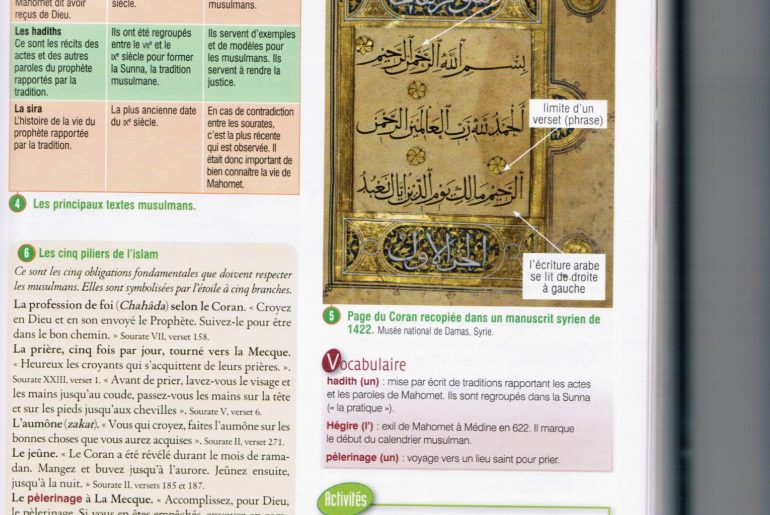 Mahomet dit avoir
reçus de Dieu.
siècle.
musulmans.
Les hadiths
Ce sont les récits des
actes et des autres
paroles du prophète
rapportés par la
tradition.
Ils ont été regroupés
entre le VIIe et le
IXe siècle pour former
la Sunna, la tradition
musulmane.
Ils servent d'exemples
et de modèles pour
les musulmans. Ils
servent à rendre la
justice.
La sira
L'histoire de la vie du
prophète rapportée
par la tradition.
La plus ancienne date
du IXe siècle.
En cas de contradiction
entre les sourates,
c'est la plus récente
qui est observée. Il
était donc important de
bien connaître la vie de
Mahomet.
4 Les principaux textes musulmans.
6 Les cinq piliers de l'islam
Ce sont les cinq obligations fondamentales que doivent respecter
les musulmans. Elles sont symbolisées par l'étoile à cinq branches.
La profession de foi (Chahâda) selon le Coran. « Croyez
en Dieu et en son envoyé le Prophète. Suivez-le pour être
dans le bon chemin. » Sourate VII, verset 158.
La prière, cinq fois par jour, tourné vers la Mecque.
« Heureux les croyants qui s'acquittent de leurs prières. ».
Sourate XXIII, verset 1. « Avant de prier, lavez-vous le visage et
les mains jusqu'au coude, passez-vous les mains sur la tête
et sur les pieds jusqu'aux chevilles ». Sourate V, verset 6.
L'aumône (zakat). « Vous qui croyez, faites l'aumône sur les
bonnes choses que vous aurez acquises ». Sourate II, verset 271.
Le jeûne. « Le Coran a été révélé durant le mois de rama-
dan. Mangez et buvez jusqu'à l'aurore. Jeûnez ensuite,
jusqu'à la nuit. » Sourate II, versets 185 et 187.
Le pèlerinage à La Mecque. « Accomplissez, pour Dieu,
le pèlerinage. Si vous en êtes empêchés, envoyez en com-
بسم الله الرحمن الرحيم
الحمد لله رب العالمين الرحمن
الرحيم مالك يوم الدين إياك نعبد
limite d'un
verset (phrase)
l'écriture arabe
se lit de droite
à gauche
5 Page du Coran recopiée dans un manuscrit syrien de
1422. Musée national de Damas, Syrie.
Vocabulaire
hadith (un) : mise par écrit de traditions rapportant les actes
et les paroles de Mahomet. Ils sont regroupés dans la Sunna
(« la pratique »).
Hégire (l') : exil de Mahomet à Médine en 622. Il marque
le début du calendrier musulman.
pèlerinage (un) : voyage vers un lieu saint pour prier.
Activités